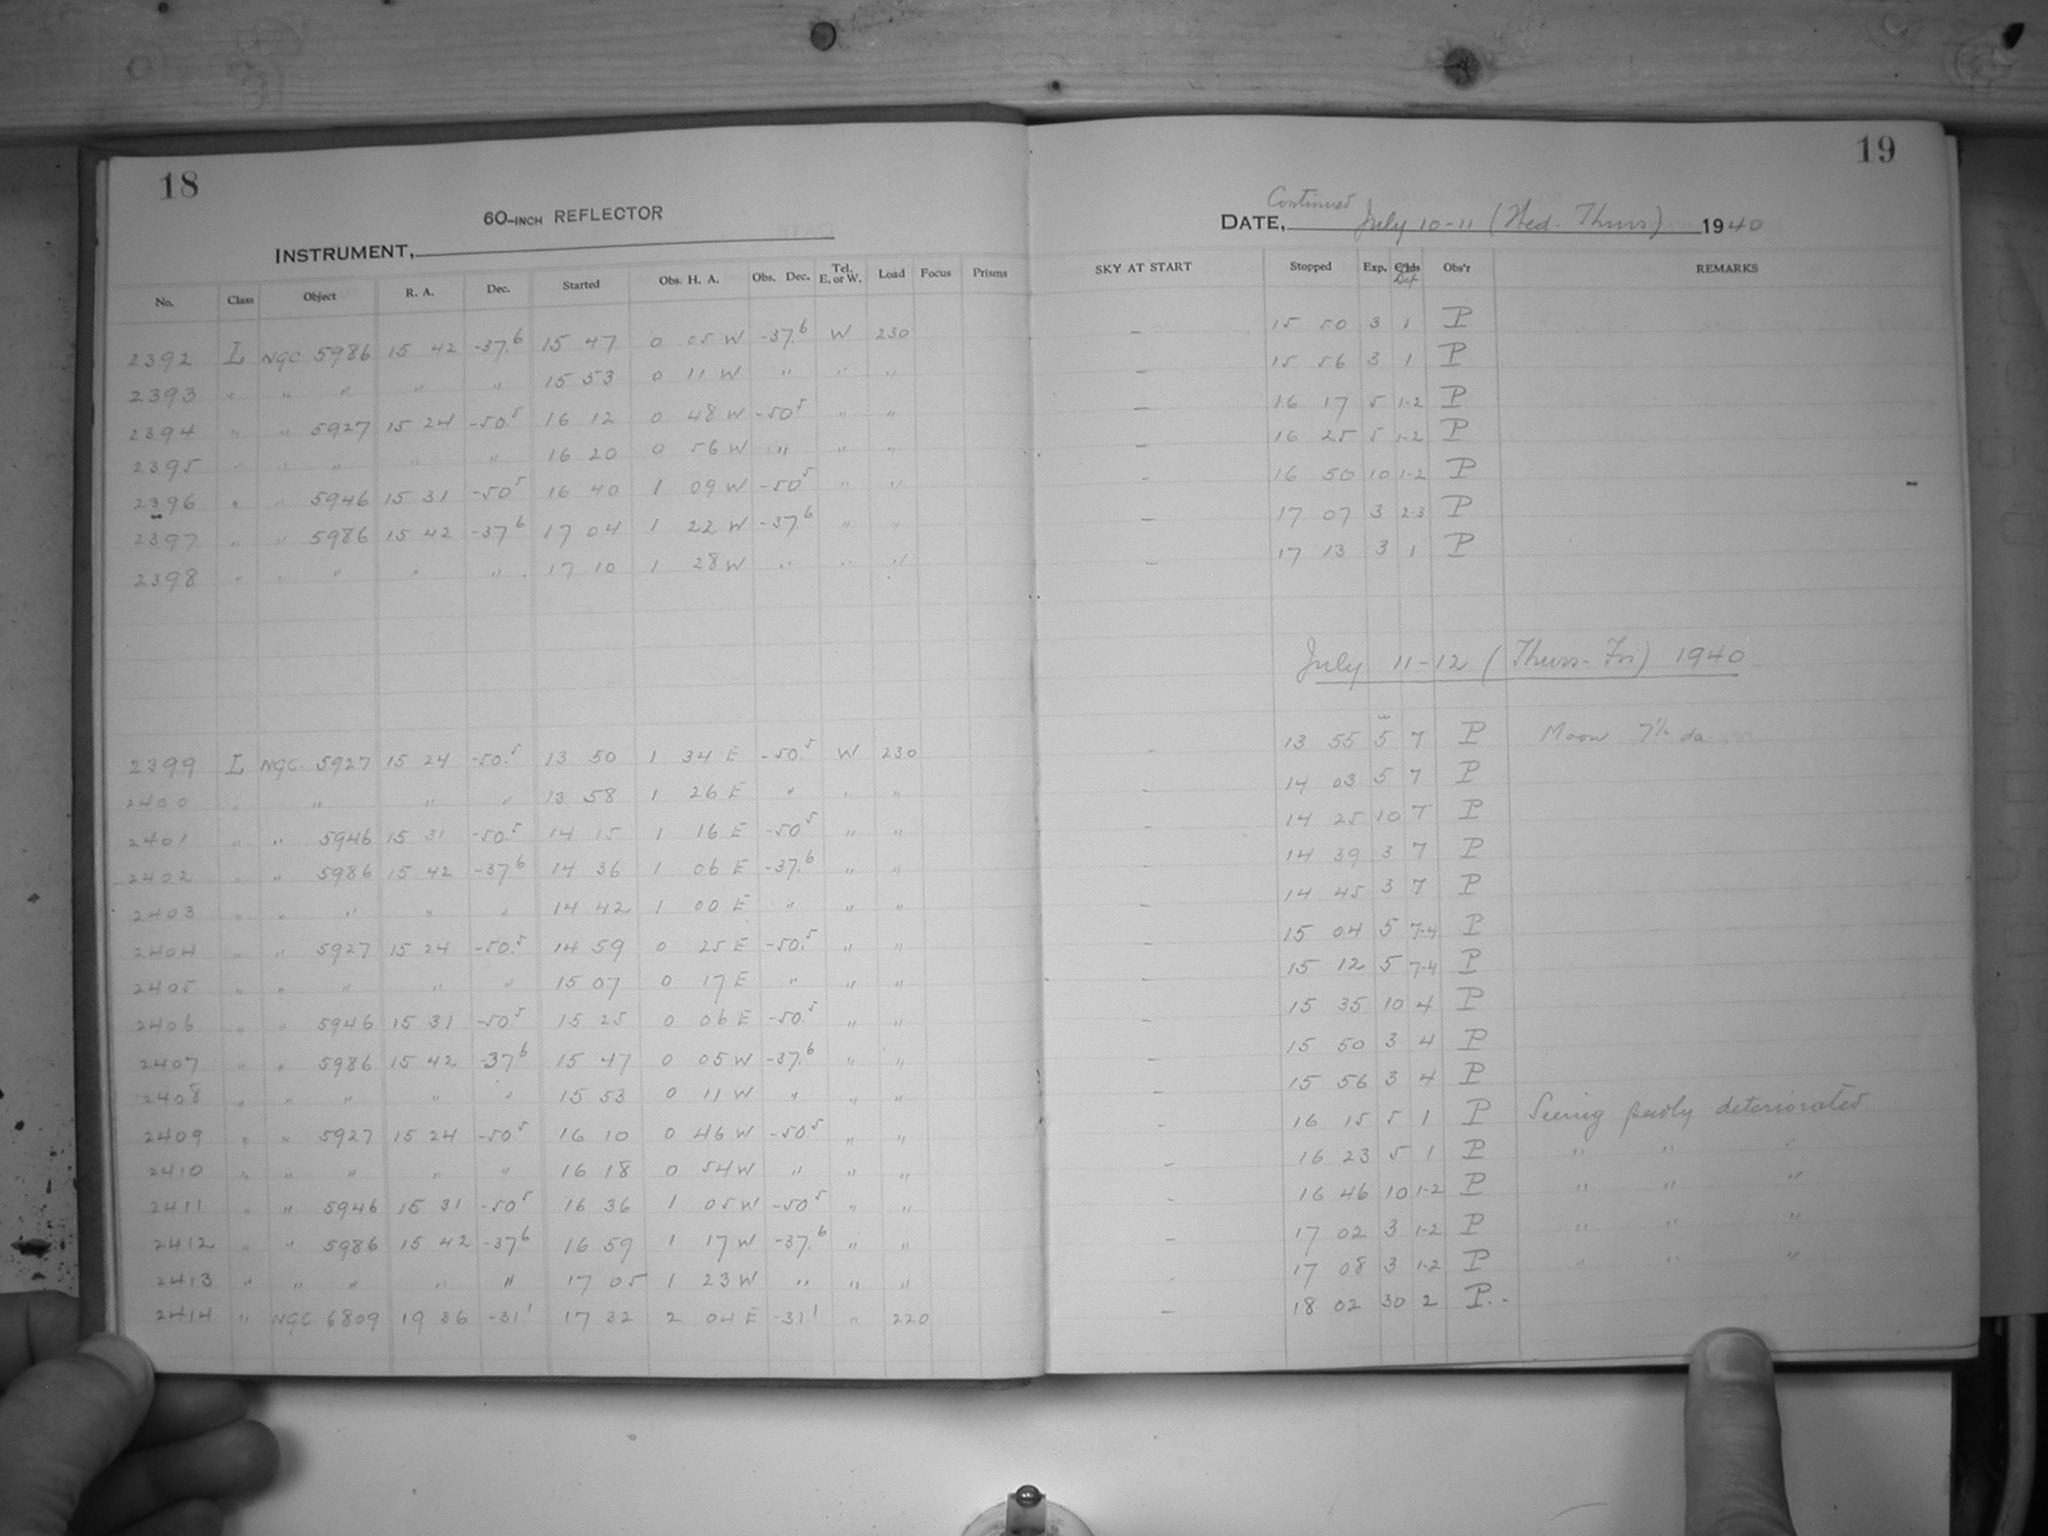 18
60-INCH REFLECTOR
INSTRUMENT,
No. Class Object R. A. Dec. Started Obs. H. A. Obs. Dec. Tel. E. or W. Load Focus Prisms
2392 L NGC 5986 15 42 -37.6 15 47 0 05 W -37.6 W 230
2393 " " " " " 15 53 0 11 W " " "
2394 " " 5927 15 24 -50.5 16 12 0 48 W -50.5 " "
2395 " " " " " 16 20 0 56 W " " "
2396 " " 5946 15 31 -50.5 16 40 1 09 W -50.5 " "
2397 " " 5986 15 42 -37.6 17 04 1 22 W -37.6 " "
2398 " " " " " 17 10 1 28 W " " "
2399 L NGC 5927 15 24 -50.5 13 50 1 34 E -50.5 W 230
2400 " " " " 13 58 1 26 E " " "
2401 " " 5946 15 31 -50.5 14 15 1 16 E -50.5 " "
2402 " " 5986 15 42 -37.6 14 36 1 06 E -37.6 " "
2403 " " " " " 14 42 1 00 E " " "
2404 " " 5927 15 24 -50.5 14 59 0 25 E -50.5 " "
2405 " " " " " 15 07 0 17 E " " "
2406 " " 5946 15 31 -50.5 15 25 0 06 E -50.5 " "
2407 " " 5986 15 42 -37.6 15 47 0 05 W -37.6 " "
2408 " " " " " 15 53 0 11 W " " "
2409 " " 5927 15 24 -50.5 16 10 0 46 W -50.5 " "
2410 " " " " " 16 18 0 54 W " " "
2411 " " 5946 15 31 -50.5 16 36 1 05 W -50.5 " "
2412 " " 5986 15 42 -37.6 16 59 1 17 W -37.6 " "
2413 " " " " " 17 05 1 23 W " " "
2414 " NGC 6809 19 36 -31.1 17 32 2 04 E -31.1 " 220
19
Continued
DATE, July 10-11 (Wed. Thurs) 1940
SKY AT START Stopped Exp. Obs'r REMARKS
Def
- 15 50 3 1 P
- 15 56 3 1 P
- 16 17 5 1-2 P
- 16 25 5 1-2 P
- 16 50 10 1-2 P
- 17 07 3 2-3 P
- 17 13 3 1 P
July 11-12 (Thurs-Fri) 1940
- 13 55 5 7 P Moon 7½ da
- 14 03 5 7 P
- 14 25 10 7 P
- 14 39 3 7 P
- 14 45 3 7 P
- 15 04 5 7-4 P
- 15 12 5 7-4 P
- 15 35 10 4 P
- 15 50 3 4 P
- 15 56 3 4 P
- 16 15 5 1 P Seeing badly deteriorated
- 16 23 5 1 P " " "
- 16 46 10 1-2 P " " "
- 17 02 3 1-2 P " " "
- 17 08 3 1-2 P " " "
- 18 02 30 2 P. -